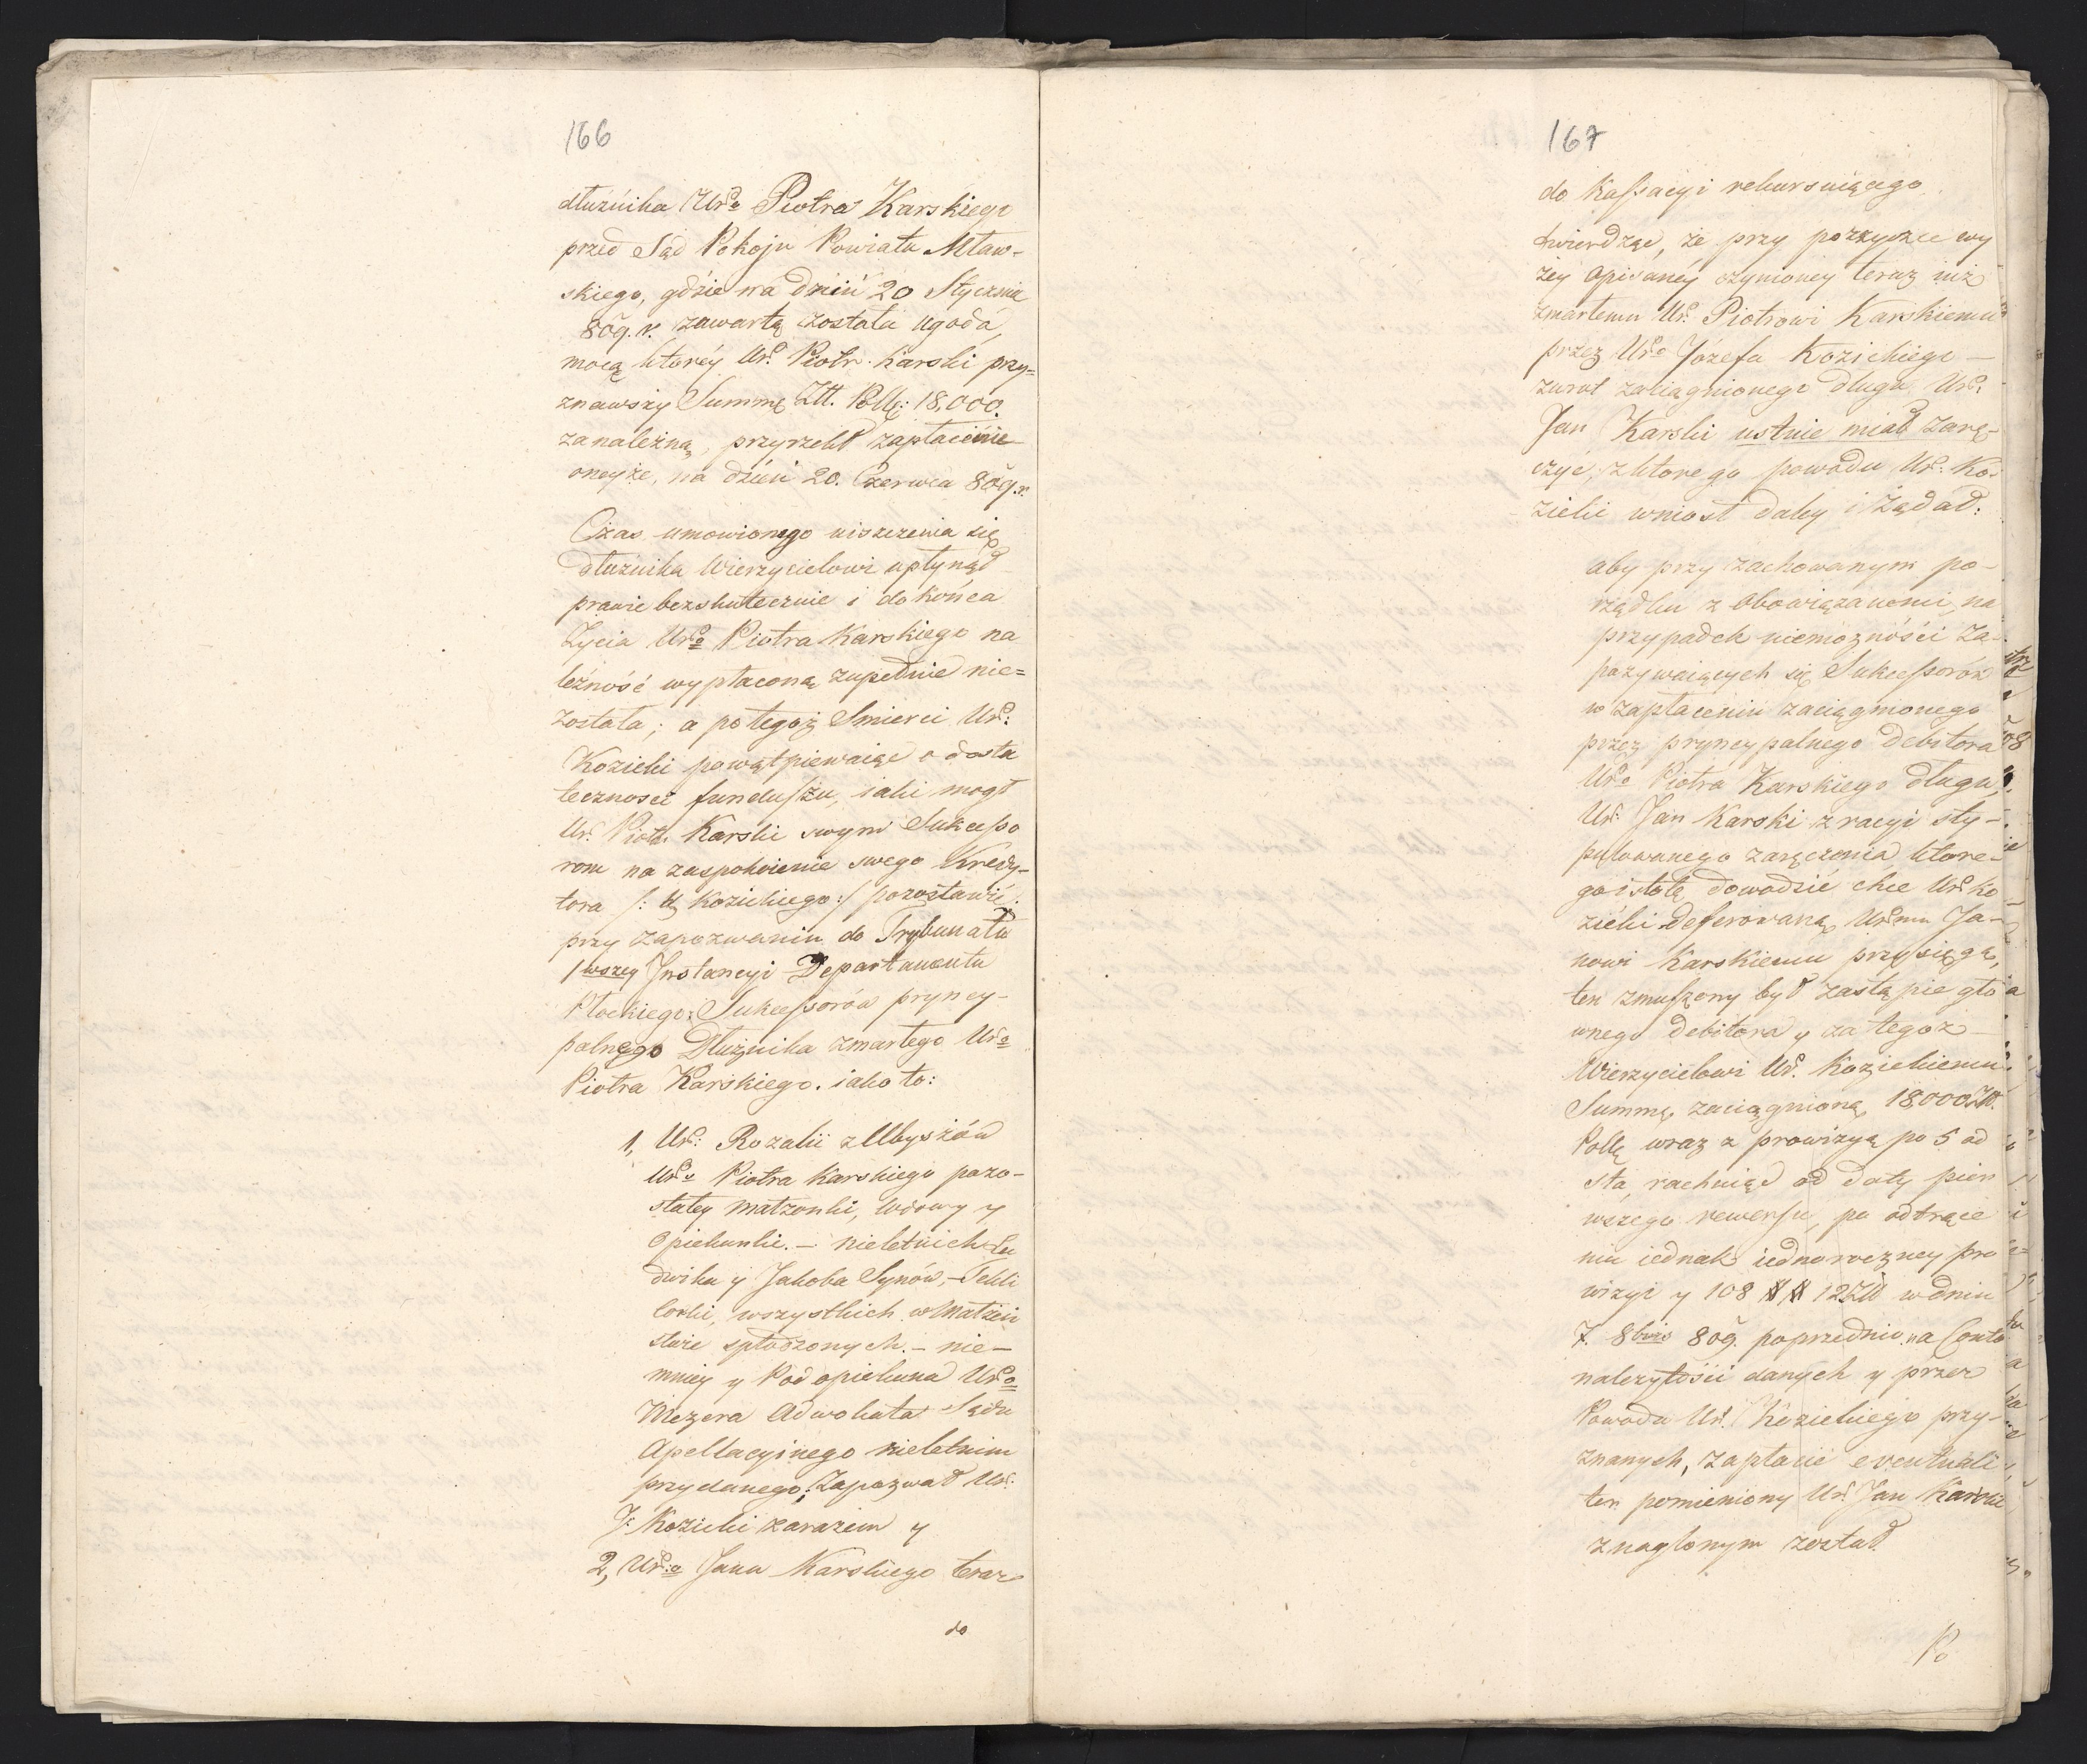 166
dłużnika Ur.o Piotra Karskiego
przed Sąd Pokoju Powiatu Mław-
skiego, gdzie na dniu 20 Stycznia
809. r. zawartą została ugoda,
mocą ktorey Ur. Piotr. Karski przy=
znawszy Summę Złł. Pollę: 18,000.
za należną, przyrzekł zapłacenie
oneyże, na dzień 20. Czerwca 809. r.
Czas umowionego uiszczenia się
dłużnika Wierzycielowi upłynął
prawie bezskutecznie i do końca
Życia Ur.o Piotra Karskiego na
leżność wypłaconą zupełnie nie=
została; a po tegoż Smierci Ur:
Kozicki powątpiewaiąc o dosta
teczności funduszu, iaki mogł
Ur. Piotr. Karski swym Sukcesso
rom na zaspokoienie swego Kredy-
tora /: U. Kozickiego :/ pozostawić,
przy zapozwaniu do Trybunału
1wszey Instancyi Departamentu
Płockiego: Sukcessorów pryncy-
palnego Dłużnika zmarłego Ur.o
Piotra Karskiego. iako to:
1, Ur: Rozalii z Ubyszów
Ur.o Piotra Karskiego pozo-
stałey małżonki, wdowy y
Opiekunki. – nieletnich Lu
dwika y Jakoba Synów, – Tekli
Corki, wszystkich w Małżeń
stwie spłodzonych. – nie-
mniey y Pod opiekuna Ur.o
Mezera Adwokata Sądu
Apellacyinego nieletnim
przydanego; Zapozwał Ur:
J. Kozicki zarazem y
2, Ur.o Jana Karskiego teraz
do
167
do Kassacyi rekursuiącego
twierdząc, że przy pożyczce wy
żey opisaney czynioney teraz iuż
zmarłemu Ur. Piotrowi Karskiemu
przez Ur.o Józefa Kozickiego –
zwrot zaciągnionego długu Ur:
Jan Karski ustnie miał zarę-
czyć, z ktorego powodu Ur: Ko-
zicki wniost daley i Żądał:
aby przy zachowanym po-
rządku z Obowiązanemi, na
przypadek niemożności za-
pozywaiących się Sukcessorów
w zapłaceniu zaciągnionego
przez pryncypalnego Debitora
Ur.o Piotra Karskiego długu,
Ur: Jan Karski z racyi sty-
pulowanego zaręczenia, ktore-
go istotę dowodzić chce Ur. Ko
zicki deferowaną Ur.mu Ja-
nowi Karskiemu przysięgą,
ten zmuszony był zastąpić gło
wnego Debitora y za tegoż
Wierzycielowi Ur. Kozickiemu
Summę zaciągnioną 18,000 Zł.
Pollę wraz z prowizyą po 5 od
sta, rachuiąc od daty pier
wszego rewersu, po odtrące
niu iednak iednoroczney pro
wizyi y 108 # 12 Zł. w dniu
7. 8bris 809. poprzednio na Conto
należytości danych y przez
Powoda Ur. Kozickiego przy-
znanych, zapłacić eventuali
ter pomieniony Ur. Jan Karski
znaglonym został.
Po